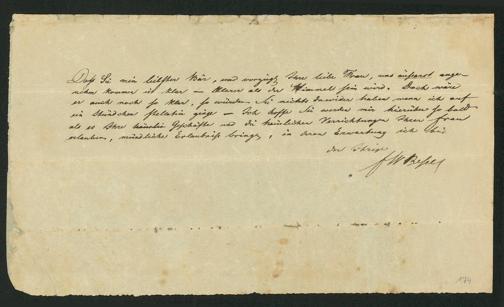 Daß Sie mein liebster Bär, und vorzügl. Ihre liebe Frau, uns äußerst ange-
nehm kommen ist klar — klarer als der Himmel sein wird. Doch wäre
er auch noch so klar, so würden Sie nichts dawider haben wenn ich auf
ein Stündchen     ginge — Ich hoffe Sie werden mir hierüber so bald
als es Ihre     Geschäfte und die häuslichen Verrichtungen Ihrer Frau
erlauben, mündliche Erlaubniß bringen, in deren Erwartung ich bin
der Ihrige
F W Bessel
174